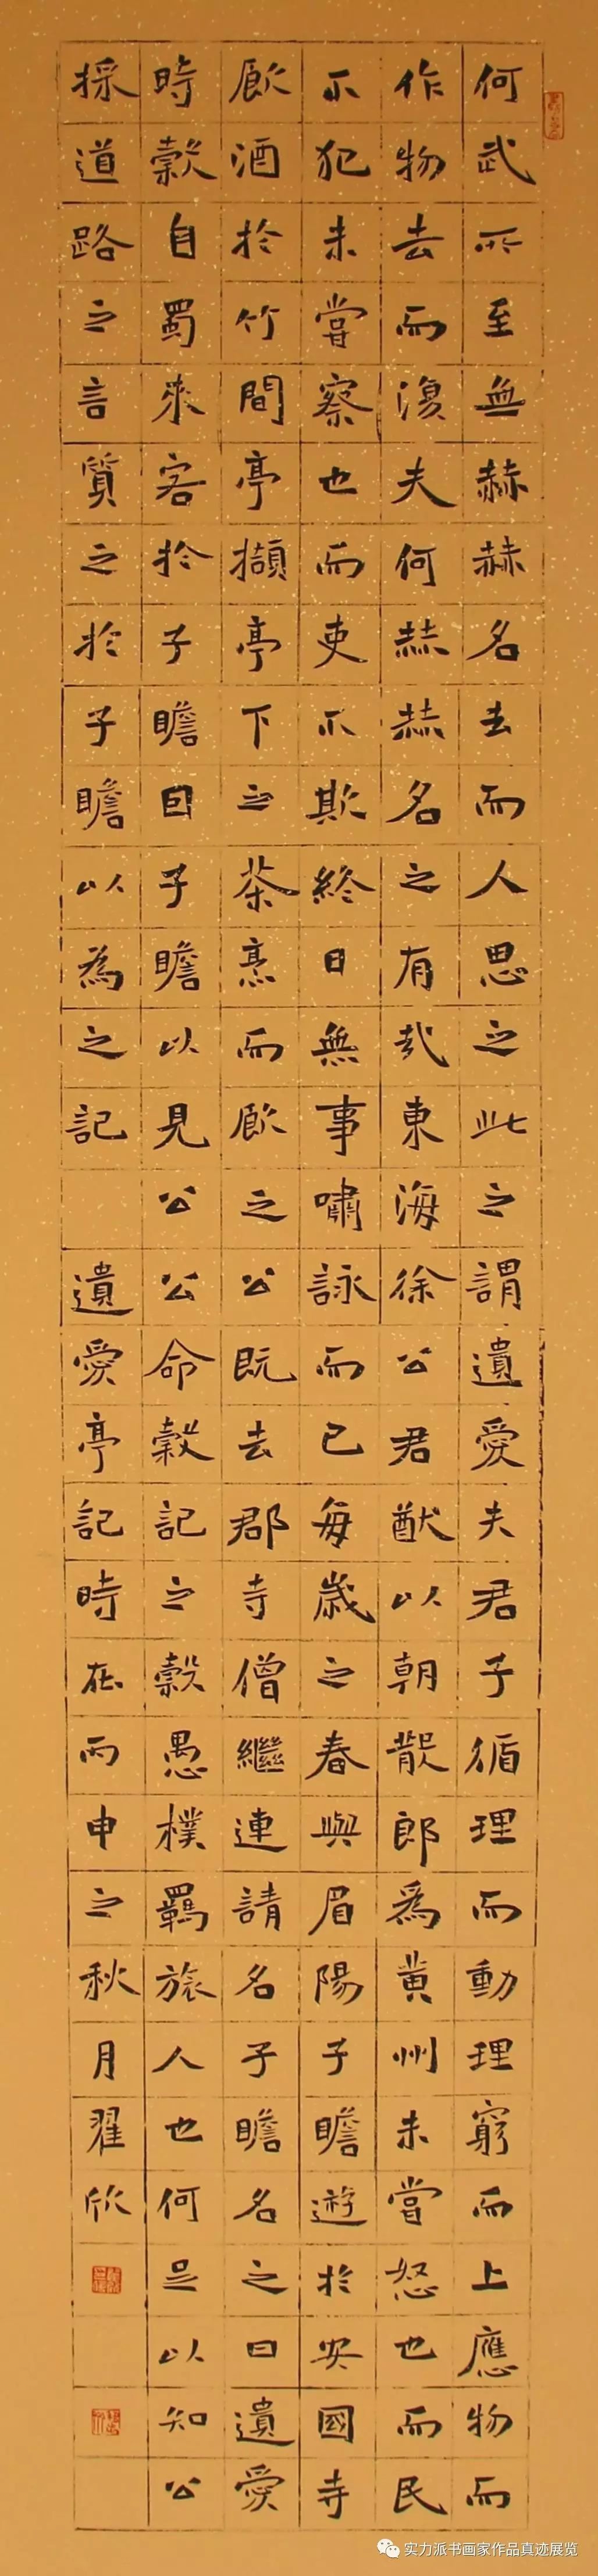 何武所至無赫赫名去而人思之此之謂遺愛夫君子循理而動理窮而上應物而
作物去而復夫何赫赫名之有哉東海徐公君猷以朝散郎為黃州未嘗怒也而民
不犯未嘗察也而吏不欺終日無事嘯詠而已每歲之春與眉陽子瞻遊於安國寺
飲酒於竹間亭擷亭下之茶烹而飲之公既去郡寺僧繼連請名子瞻名之曰遺愛
時穀自蜀來客於子瞻因子瞻以見公公命穀記之穀愚樸羈旅人也何足以知公
採道路之言質之於子瞻以為之記 遺愛亭記時在丙申之秋月翟欣
实力派书画家作品真迹展览